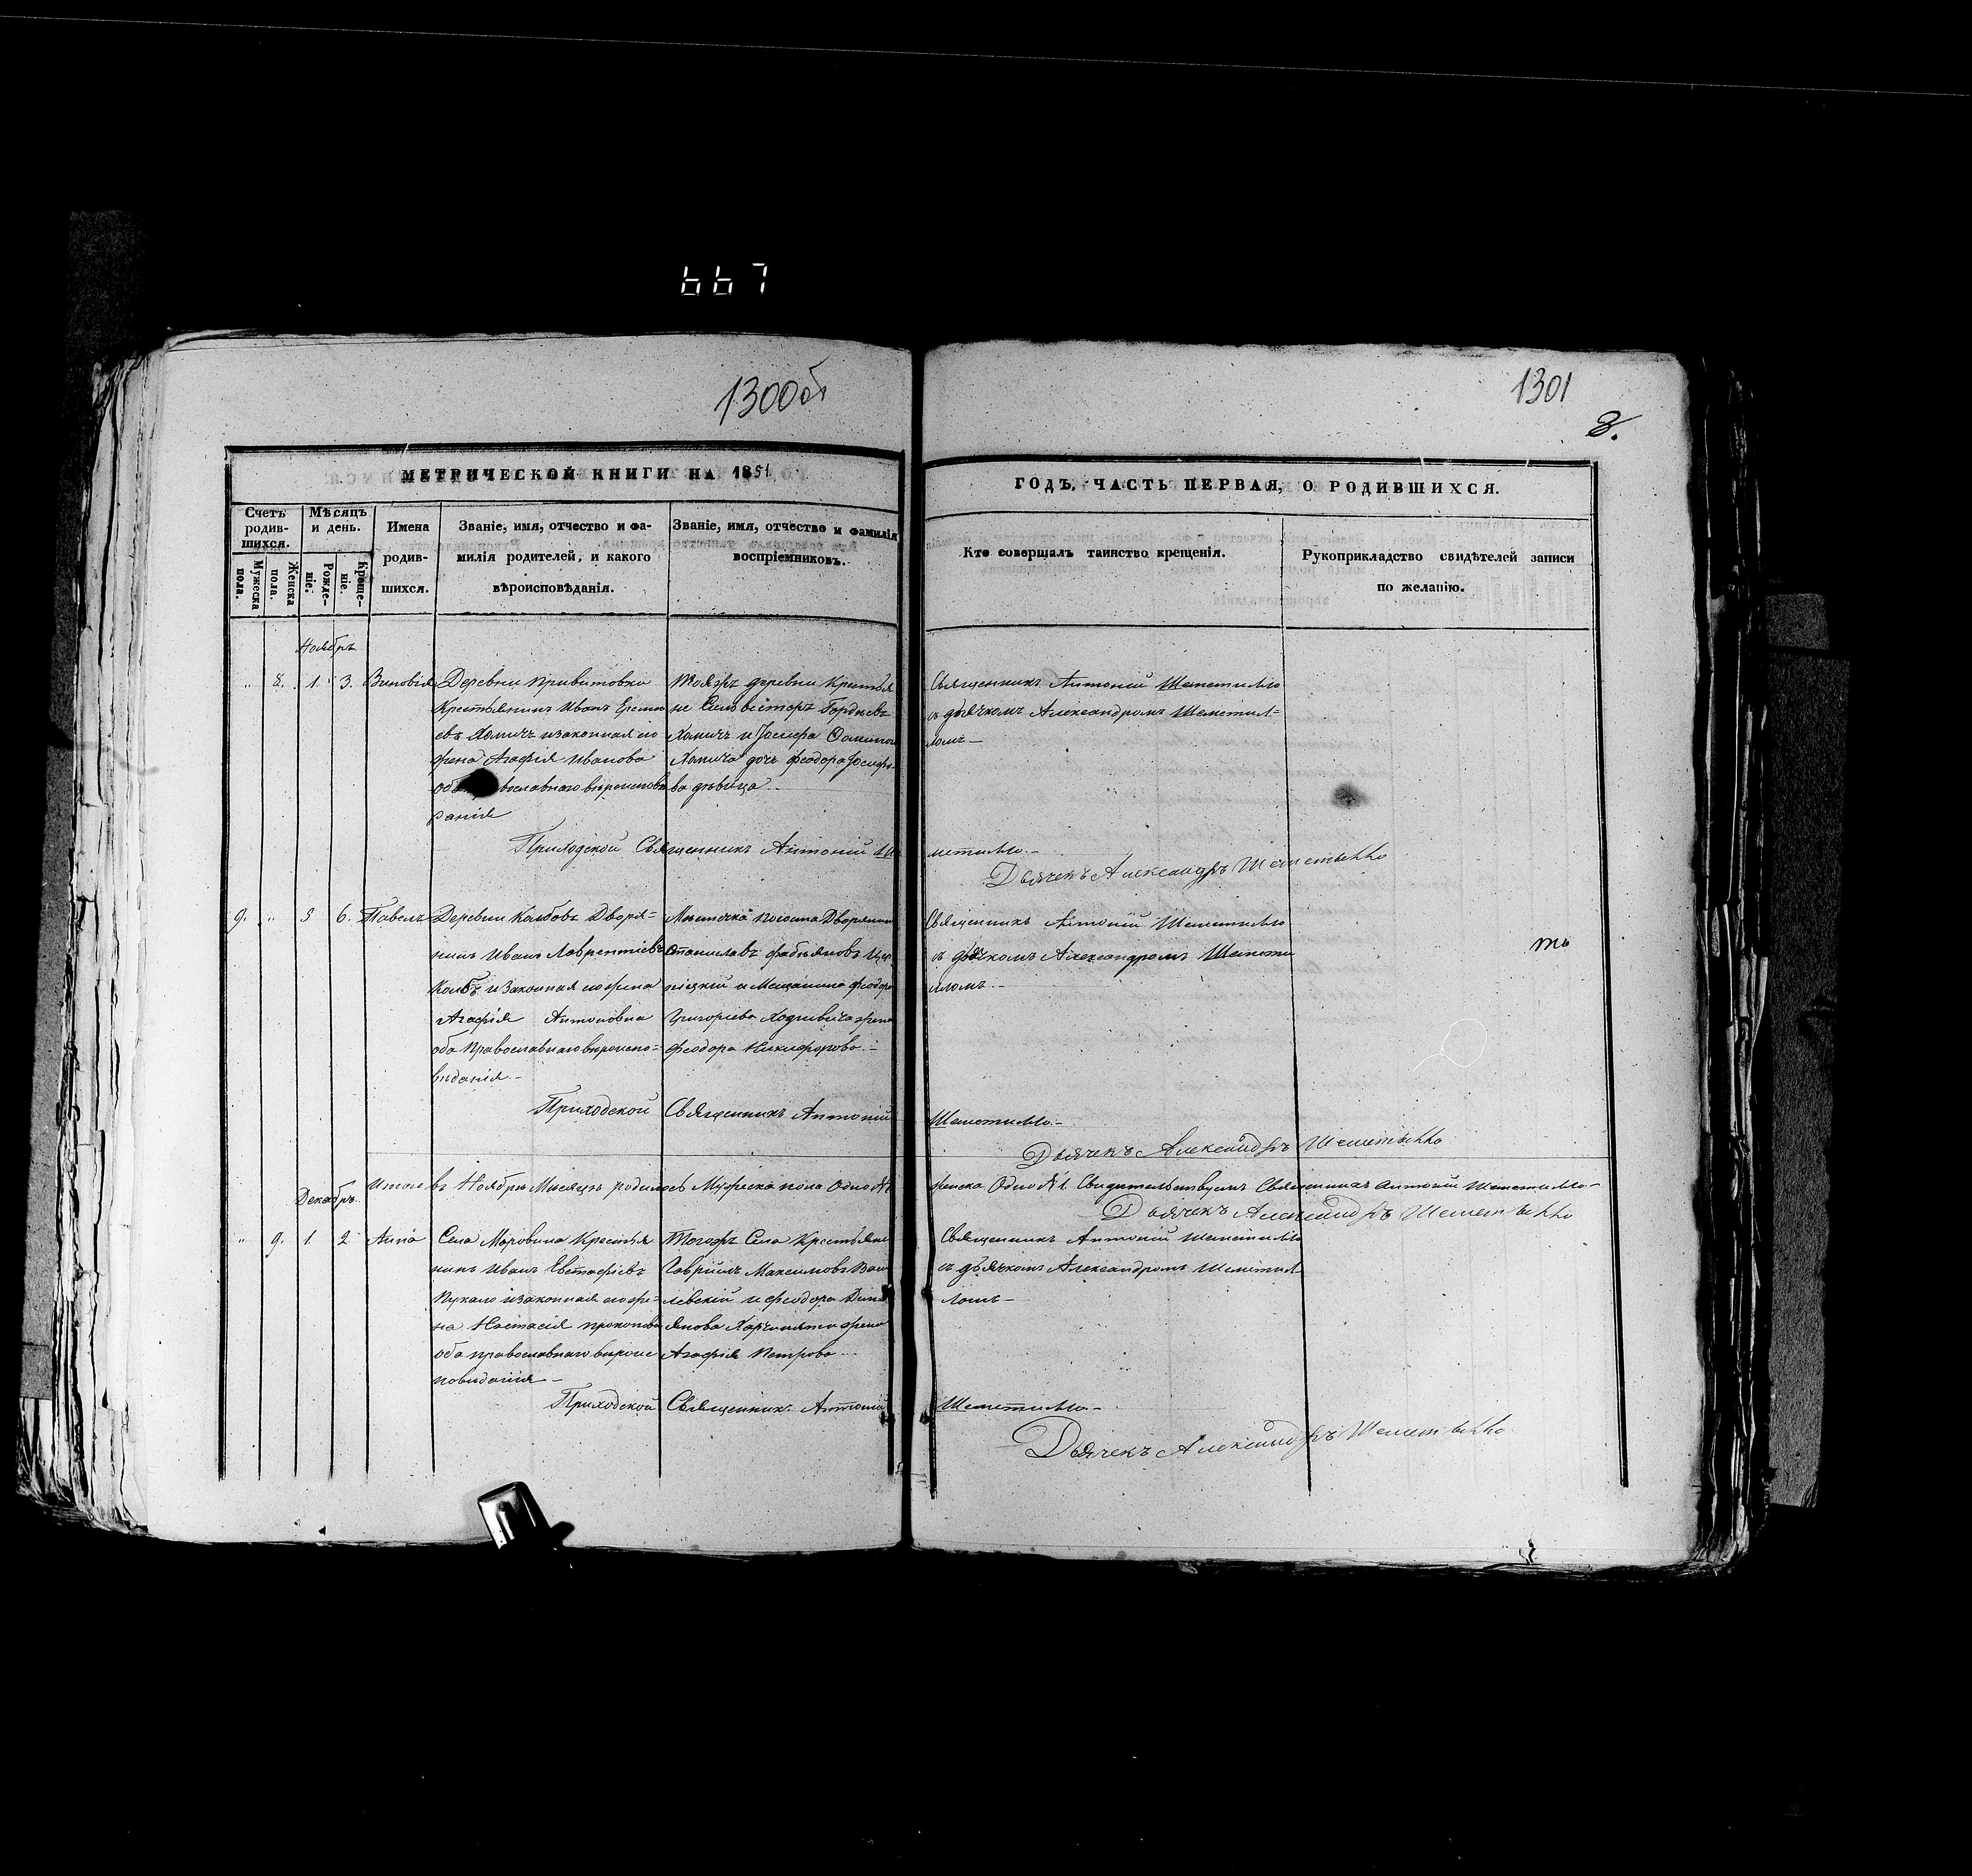 667
1300об
1301
8.
МЕТРИЧЕСКОЙ КНИГИ НА 1851
ГОДЪ, ЧАСТЬ ПЕРВАЯ, О РОДИВШИХСЯ.
Счетъ родив-шихся.
Мужеска пола.
Женска пола.
Мѣсяцъ и день.
Рожде-ніе.
Креще-ніе.
Имена родив-шихся.
Званіе, имя, отчество и фа-
милія родителей, и какого
вѣроисповѣданія.
Званіе, имя, отчество и фамилія
воспріемниковъ.
Кто совершалъ таинство крещенія.
Рукоприкладство свидѣтелей записи
по желанію.
Ноябрь
„ 8. 1. 3. Зиновія
Деревни Привитовки
Крестьянинъ Иванъ Ереми
евъ Хомичъ и законная его
жена Агафія Иванова
оба православнаго вѣроисповѣ
данія
Тояжъ деревни Крестья
не Сильвестръ Гордѣевъ
Хомичъ и Іосифа
Хомича дочь Феодора Іосифо-
ва дѣвица
Священникъ Антоній Шеметилло
съ дьячкомъ Александромъ Шеметил=
ломъ
Приходской Священникъ Антоній Ше
метилло.
Дьячекъ Александръ Шеметылло
9. „ 5 6. Павелъ
Деревни Колбовъ Дворя=
нинъ Иванъ Лаврентіевъ
Колбъ и Законная его жена
Агафія Антоновна
оба Православнаго вѣроиспо=
вѣданія
Мѣстечка Погоста Дворянинъ
Станиславъ Фабьяновъ
и Мещанина Феодора
Григорьева Ходкевича жена
Феодора Никифорова
Священникъ Антоній Шеметилло
съ дьячкомъ Александромъ Шемети
лломъ
ть
Приходской Священникъ Антоній
Шеметилло.
Дьячекъ Александръ Шеметылло
Итого въ Ноябрѣ Мѣсяцѣ родилось Мужеска пола Одно №1
женска Одно №1. Свидѣтельствуемъ Священникъ Антоній Шеметилло
Дьячекъ Александръ Шеметылло
Декабрь
„ 9. 1. 2 Анна
Села Моровина Крестья
нинъ Иванъ Евстафіевъ
Пукало и законная его же=
на Настасія Прокопова
оба православнаго вѣроис
повѣданія
Тогожъ Села Крестьяне
Гавріилъ Максимовъ Васи
левскій и Феодора Демь
янова жена
Агафія Петрова
Священникъ Антоній Шеметилло
съ дьячкомъ Александромъ Шеметил
ломъ
Приходской Священникъ Антоній
Шеметилло.
Дьячекъ Александръ Шеметылло